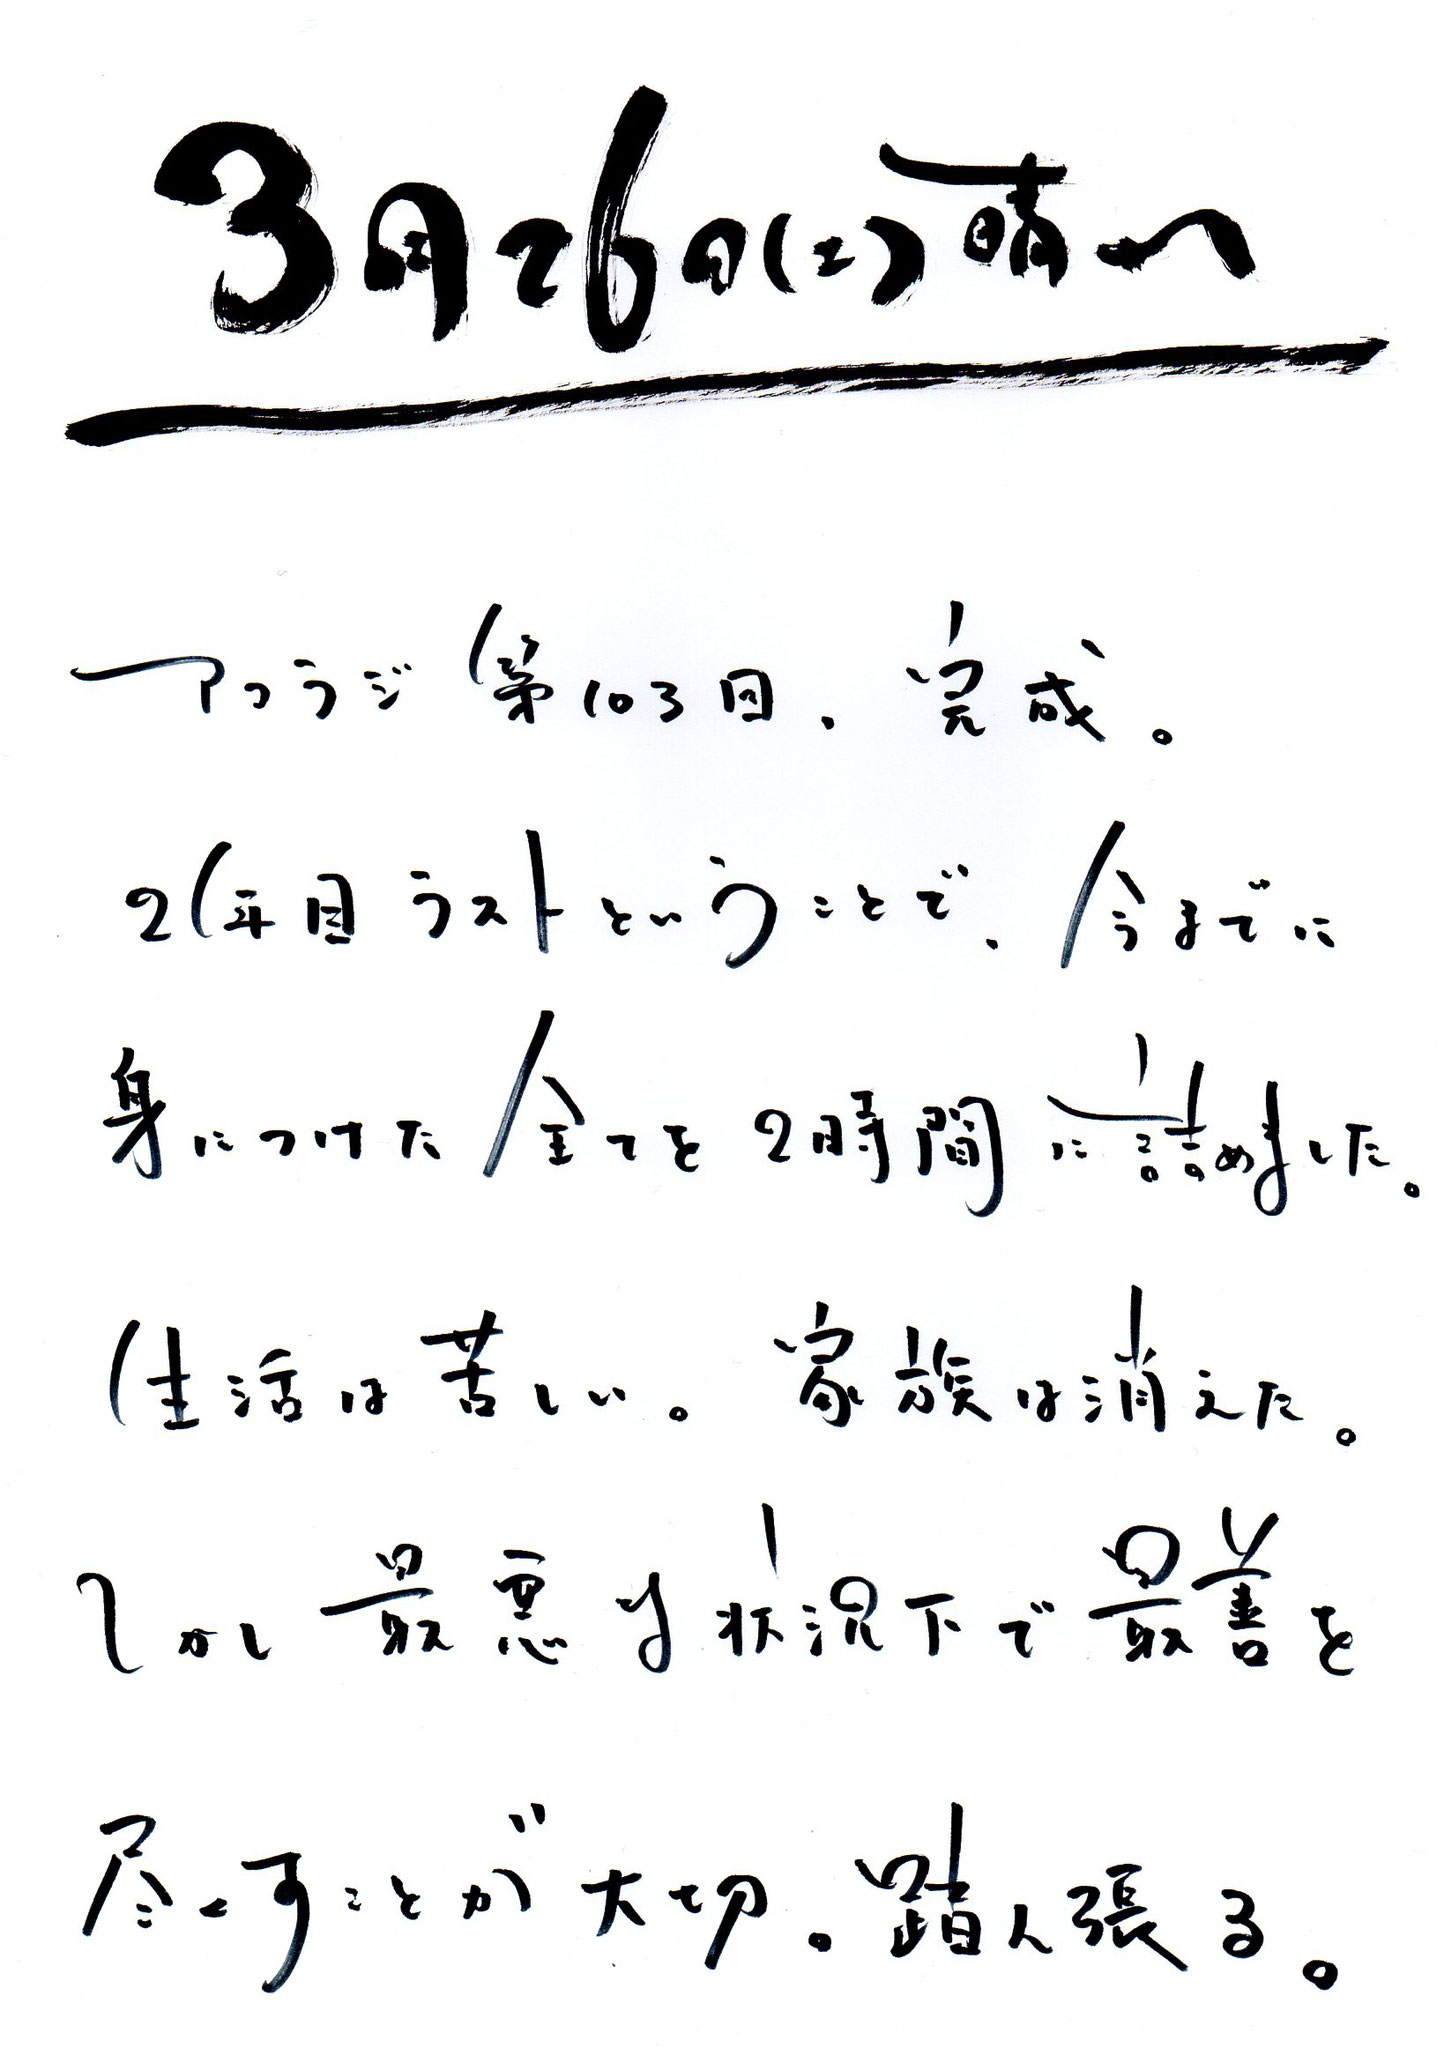 3月26日(土)晴れ
アコラジ第103回、完成。
2年目ラストということで、今までに
身につけた全てを2時間に詰めました。
生活は苦しい。家族は消えた。
しかし最悪な状況下で最善を
尽くすことが大切。踏ん張る。